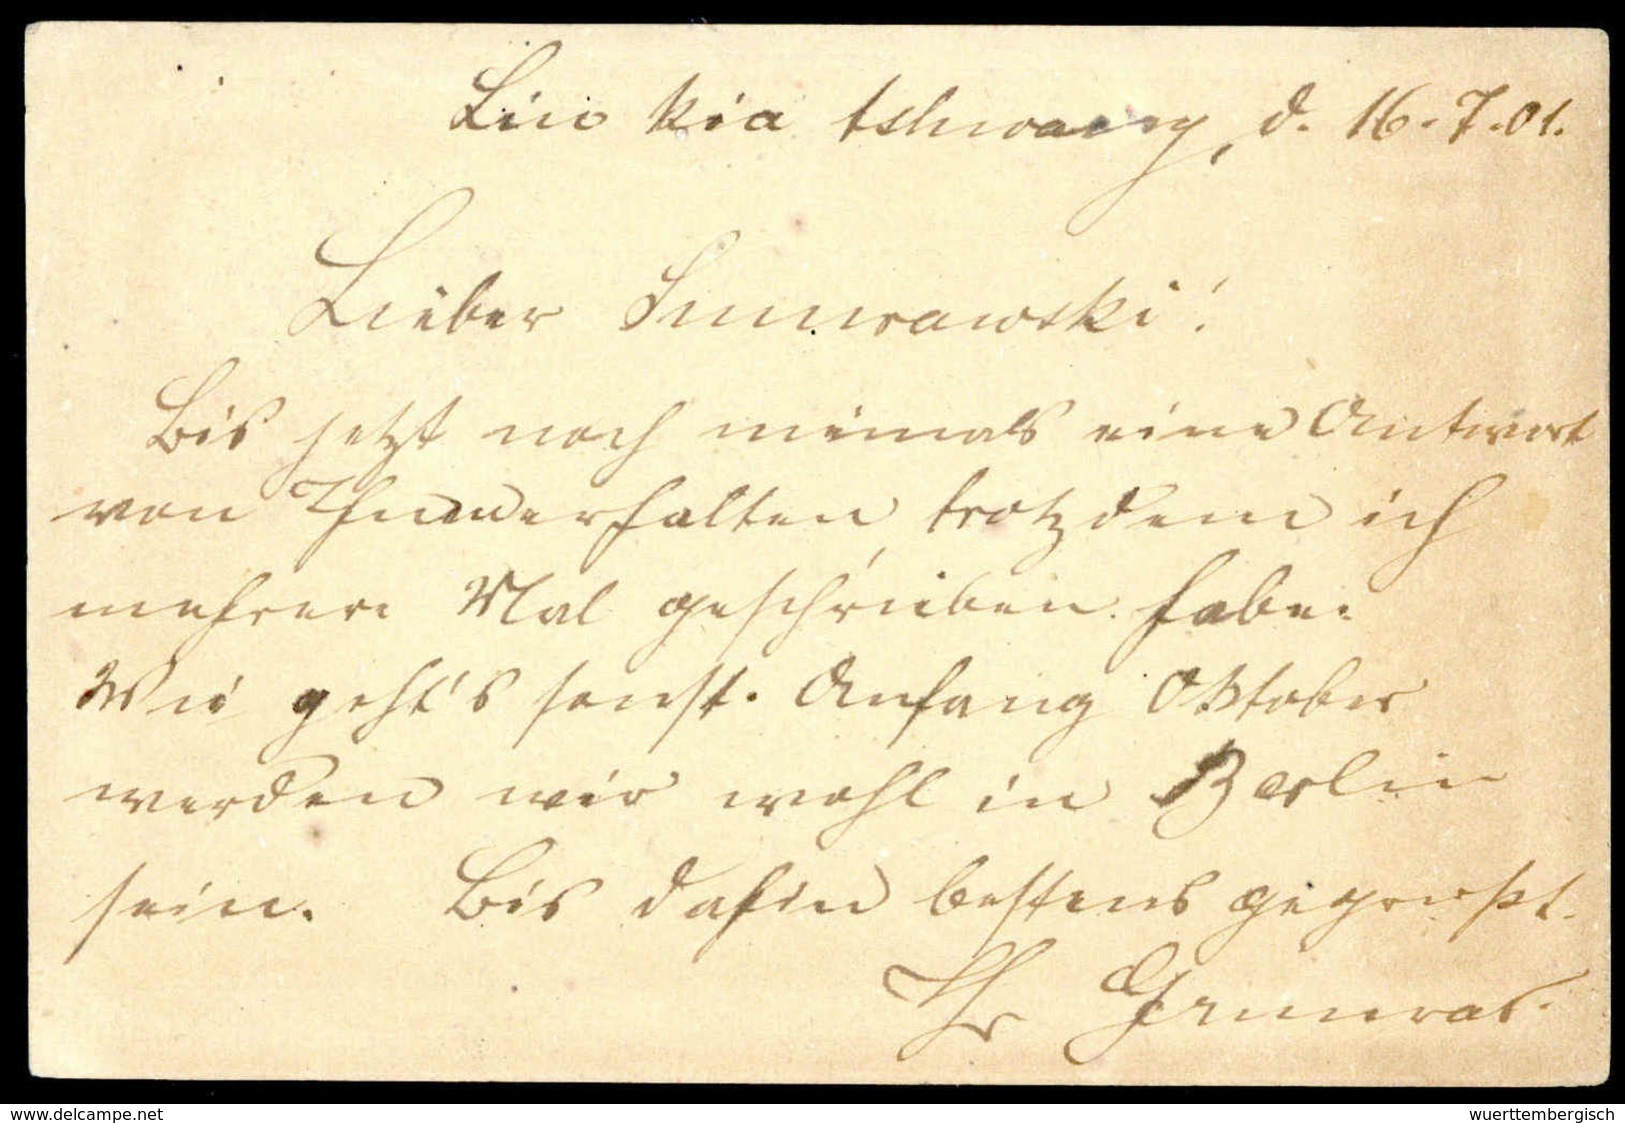 Liu kia tshwang, d. 16.7.01.
Lieber
Bis jetzt noch niemals eine Antwort
von Ihnen erhalten, trotzdem ich
mehrere Mal geschrieben habe.
Wie geht's sonst. Anfang Oktober
werden wir wohl in Berlin
sein. Bis dahin bestens gegrüßt.
Ihr
www.delcampe.net
wuerttembergisch